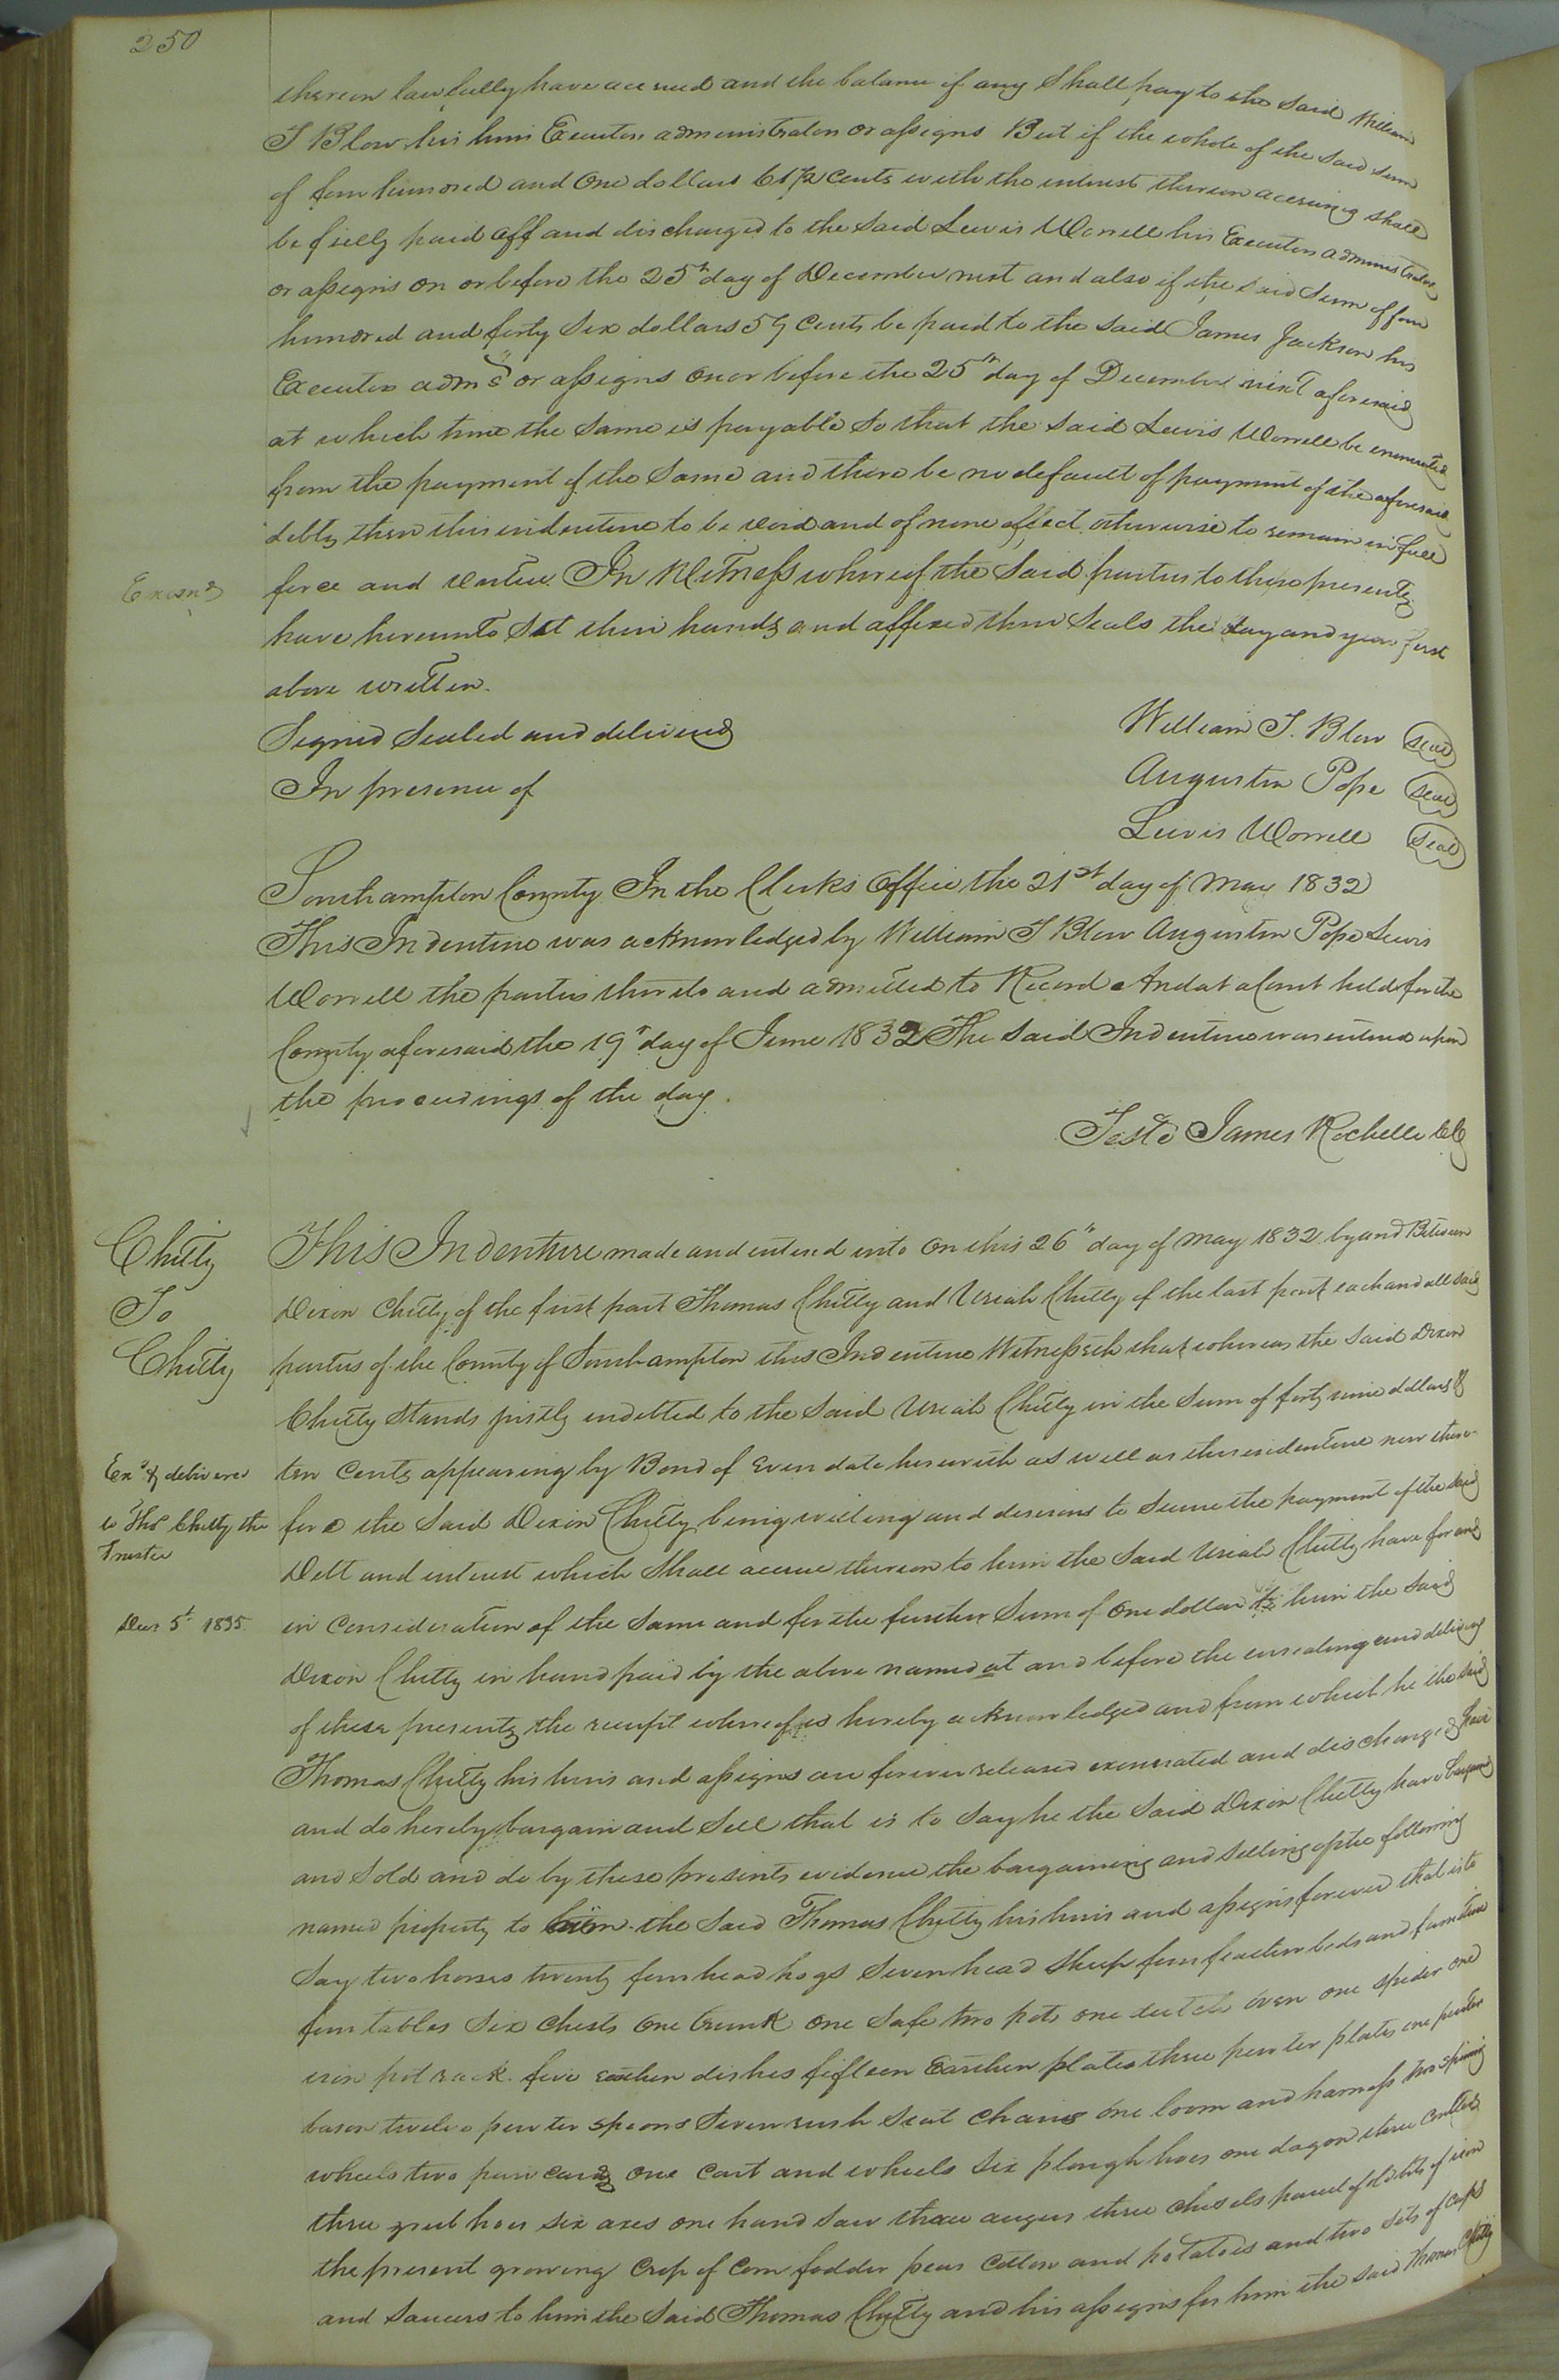 250
thereon lawfully have accrued and the balance if any Shall pay to the said William
T Blow his heirs Executors administrators or assigns But if the whole of the said sum
of four hundred and One dollars 61½ Cents with the interest thereon accruing shall
be fully paid off and discharged to the said Lewis Worrell his Executors administrators
or assigns on or before the 25th day of December next and also if the said Sum of four
hundred and forty Six dollars 59 Cents be paid to the said James Jackson his
Executors adms or assigns on or before the 25th day of December next aforesaid
at which time the same is payable So that the said Lewis Worrell be exonerated
from the payment of the same and there be no default of payment of the aforesaid
debts then this indenture to be void and of none effect otherwise to remain in full
Examd
force and virtue In Witness whereof the Said parties to these presents
have hereunto Set their hands and affixed their Seals the day and year first
above written.
Signed Sealed and delivered
In presence of
William T. Blow Seal
Augustin Pope Seal
Lewis Worrell Seal
Southampton County In the Clerks Office the 21st day of May 1832
This Indenture was acknowledged by William T Blow Augustin Pope Lewis
Worrell the parties thereto and admitted to Record And at a Court held for the
County aforesaid the 19th day of June 1832 The Said Indenture was entered upon
the proceedings of the day.
Teste James Rochelle CC
Chitty
To
Chitty
This Indenture made and entered into On this 26th day of May 1832 by and Between
Dixon Chitty of the first part Thomas Chitty and Uriah Chitty of the last part each and all said
parties of the County of Southampton this Indenture Witnesseth that whereas the Said Dixon
Chitty Stands justly indebted to the Said Uriah Chitty in the Sum of forty nine dollars &
Exd & delivered
to Thos Chitty the
Trustee
Decr 5t 1835
ten Cents appearing by Bond of even date herewith as well as this indenture now there
fore the Said Dixon Chitty being willing and desirous to Secure the payment of the said
Debt and interest which Shall accrue thereon to him the Said Uriah Chitty have for and
in Consideration of the Same and for the further Sum of One dollar to him the said
Dixon Chitty in hand paid by the above named at and before the ensealing and delivery
of these presents the receipt whereof is hereby acknowledged and from which he the said
Thomas Chitty his heirs and assigns are forever released exonerated and discharged have
and do hereby bargain and Sell that is to Say he the Said Dixon Chitty have bargained
and Sold and do by these presents evidence the bargaining and Selling of the following
named property to him the Said Thomas Chitty his heirs and assigns forever that is to
Say two horses twenty four head hogs Seven head Sheep four feather beds and furniture
four tables Six Chests One trunk One Safe two pots one dutch oven one Spider one
iron pot rack five earthen dishes fifteen Earthen plates three pewter plates one pewter
bason twelve pewter Spoons Seven rush Seat Chairs One loom and harness two spinning
wheels two pair cards One Cart and wheels Six plough hoes one dagon three Coulters
three grub hoes Six axes one hand Saw three augers three chisels parcel of old bits of iron
the present growing Crop of Corn fodder peas Cotton and potatoes and two Sets of Cups
and Saucers to him the Said Thomas Chitty and his assigns for him the said Thomas Chitty